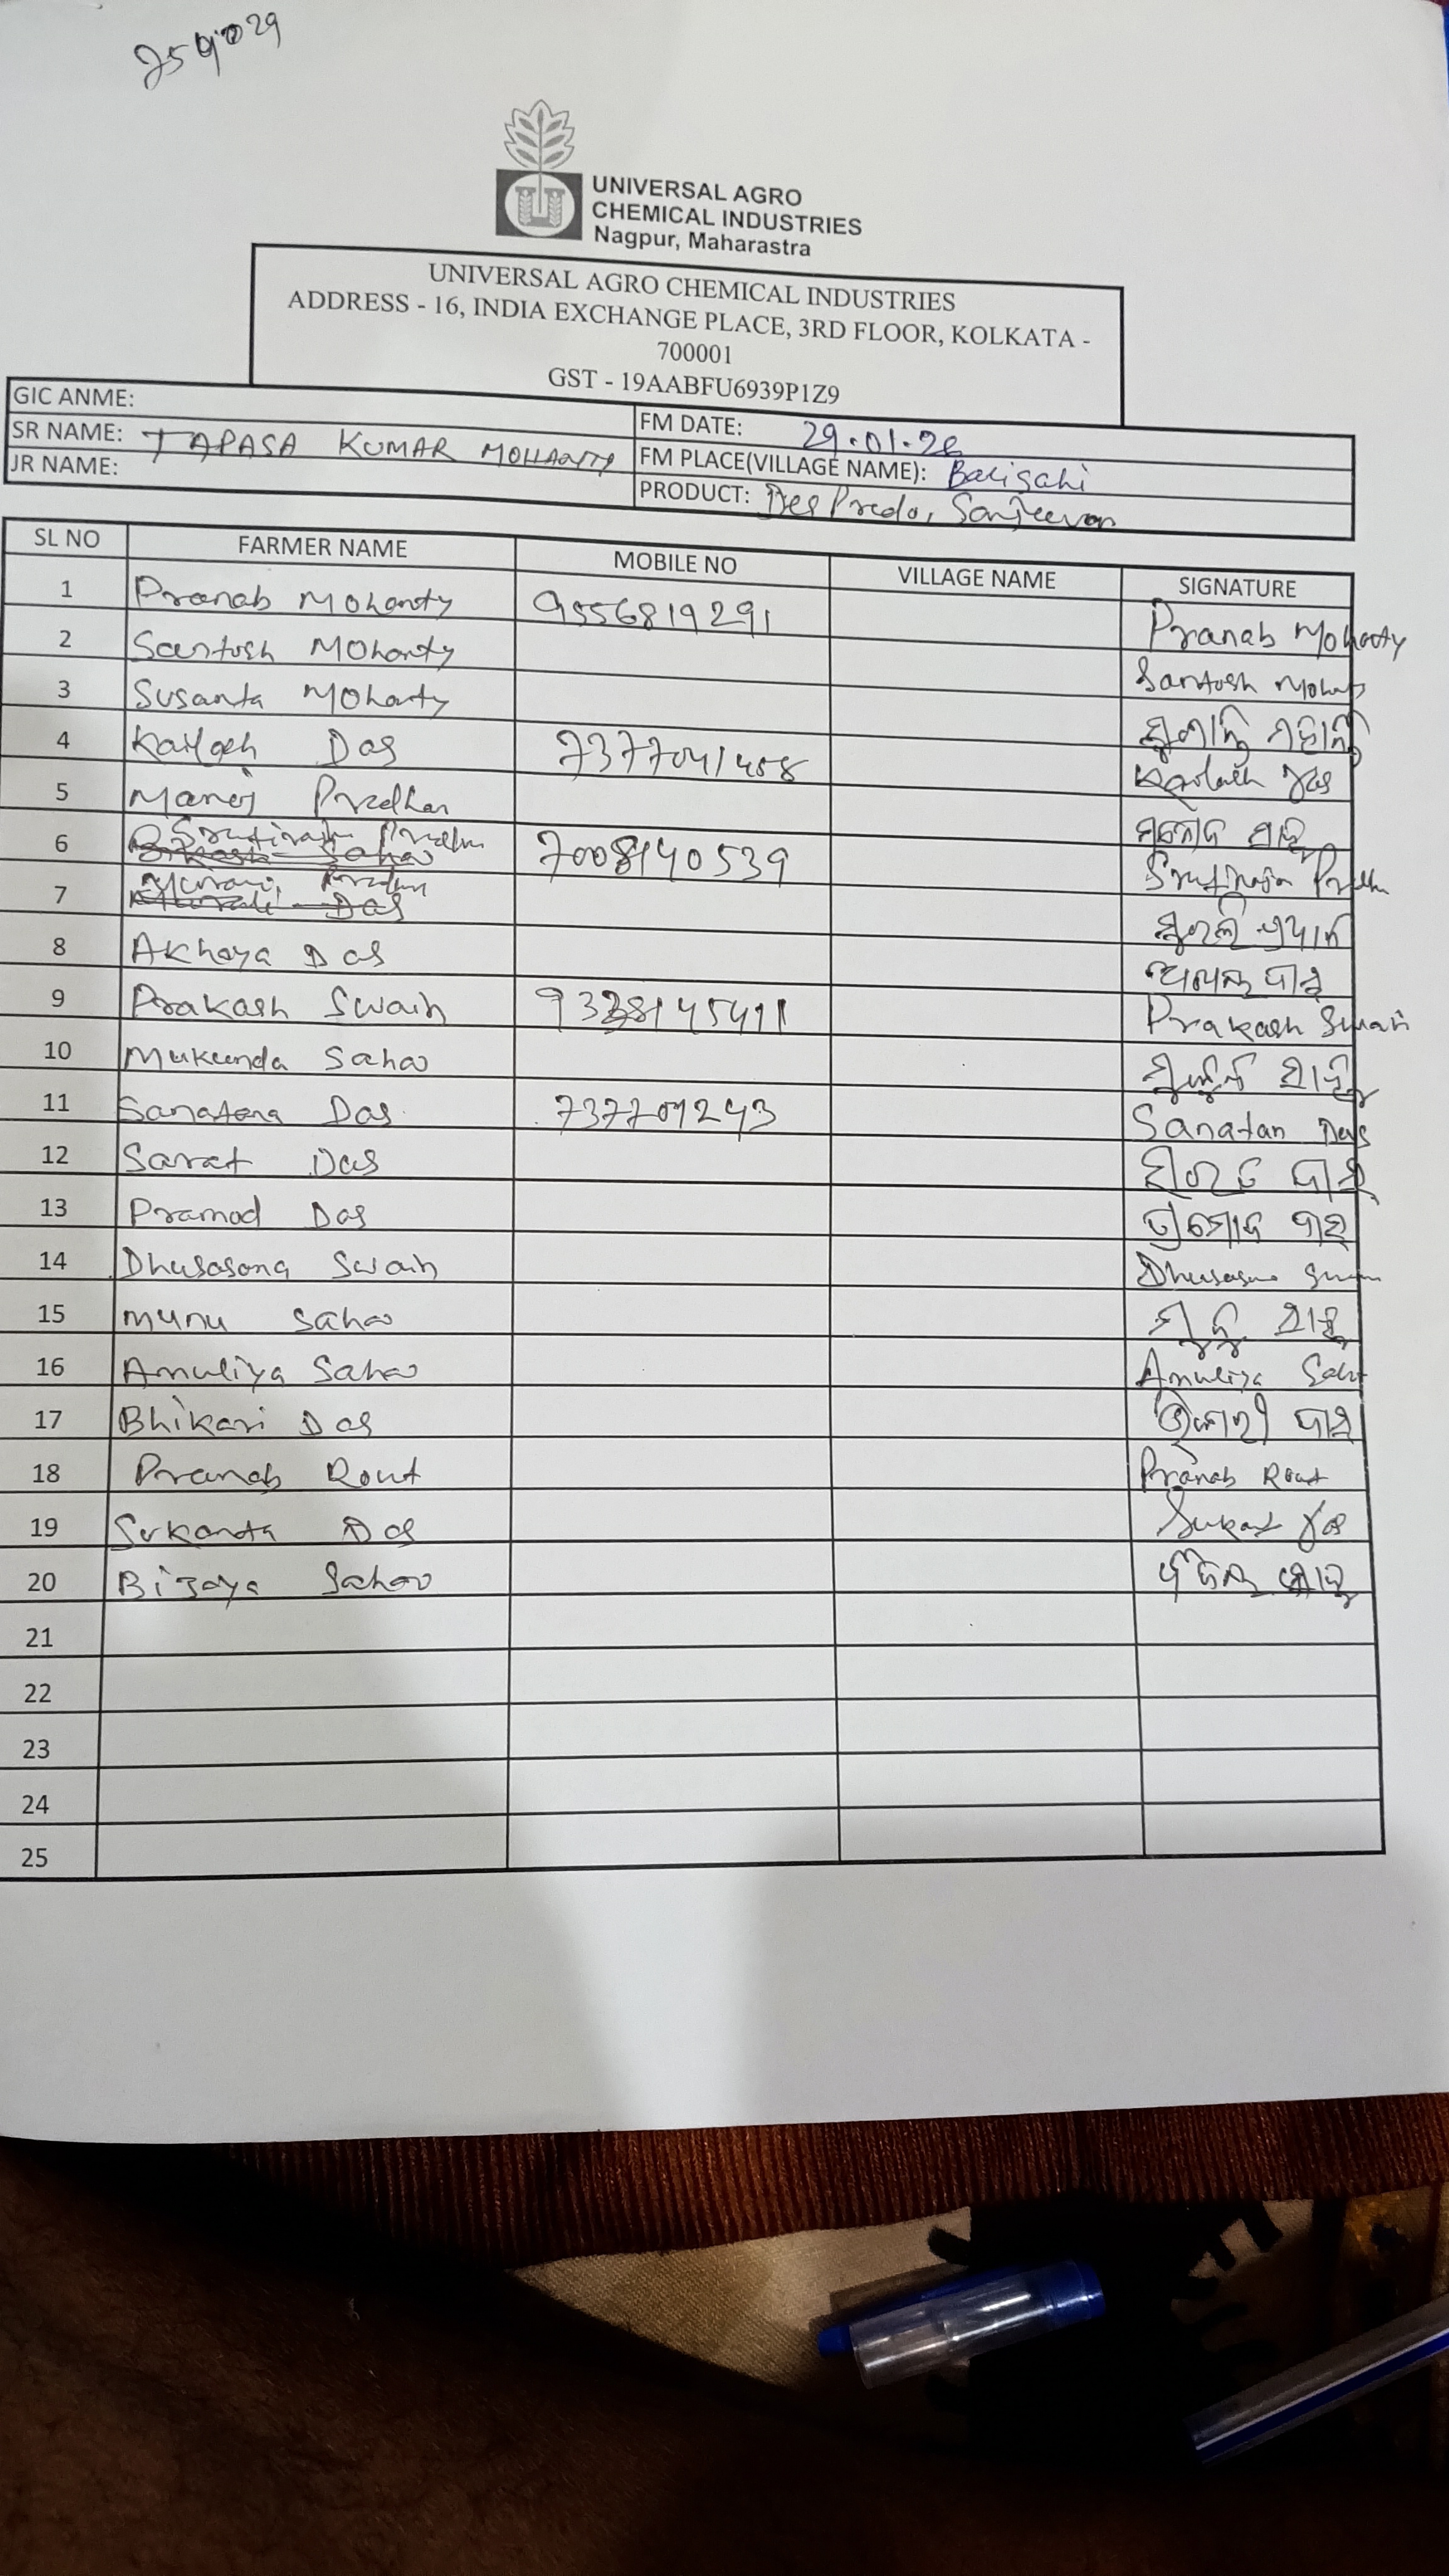 UNIVERSAL AGRO
CHEMICAL INDUSTRIES
Nagpur, Maharastra
UNIVERSAL AGRO CHEMICAL INDUSTRIES
ADDRESS - 16, INDIA EXCHANGE PLACE, 3RD FLOOR, KOLKATA -
700001
GST - 19AABFU6939P1Z9
GIC ANME:
FM DATE: 29.01.26
SR NAME: TAPASA KUMAR MOHANTY
FM PLACE(VILLAGE NAME): Balisahi
JR NAME:
PRODUCT: Sanjeevan
SL NO FARMER NAME MOBILE NO VILLAGE NAME SIGNATURE
1 Pranab Mohanty 9556819291 Pranab Mohanty
2 Santosh Mohanty Santosh
3 Susanta Mohanty
4 Kailash Das 7377041458 Kailash Das
5 Manoj Pradhan
6 Pradhan 7008140539
7
8 Akhaya Das
9 Prakash Swain Prakash Swain
10 Mukunda Sahoo
11 Sanatana Das 737704243 Sanatan Das
12 Sarat Das ଶରତ ଦାସ
13 Pramod Das ପ୍ରମୋଦ ଦାସ
14 Dhusasana Swain
15 Munu Sahoo
16 Amuliya Sahoo Amuliya
17 Bhikari Das ଭିକାରୀ ଦାସ
18 Pranab Rout Pranab Rout
19 Sukanta Das
20 Bijaya Sahoo
21
22
23
24
25